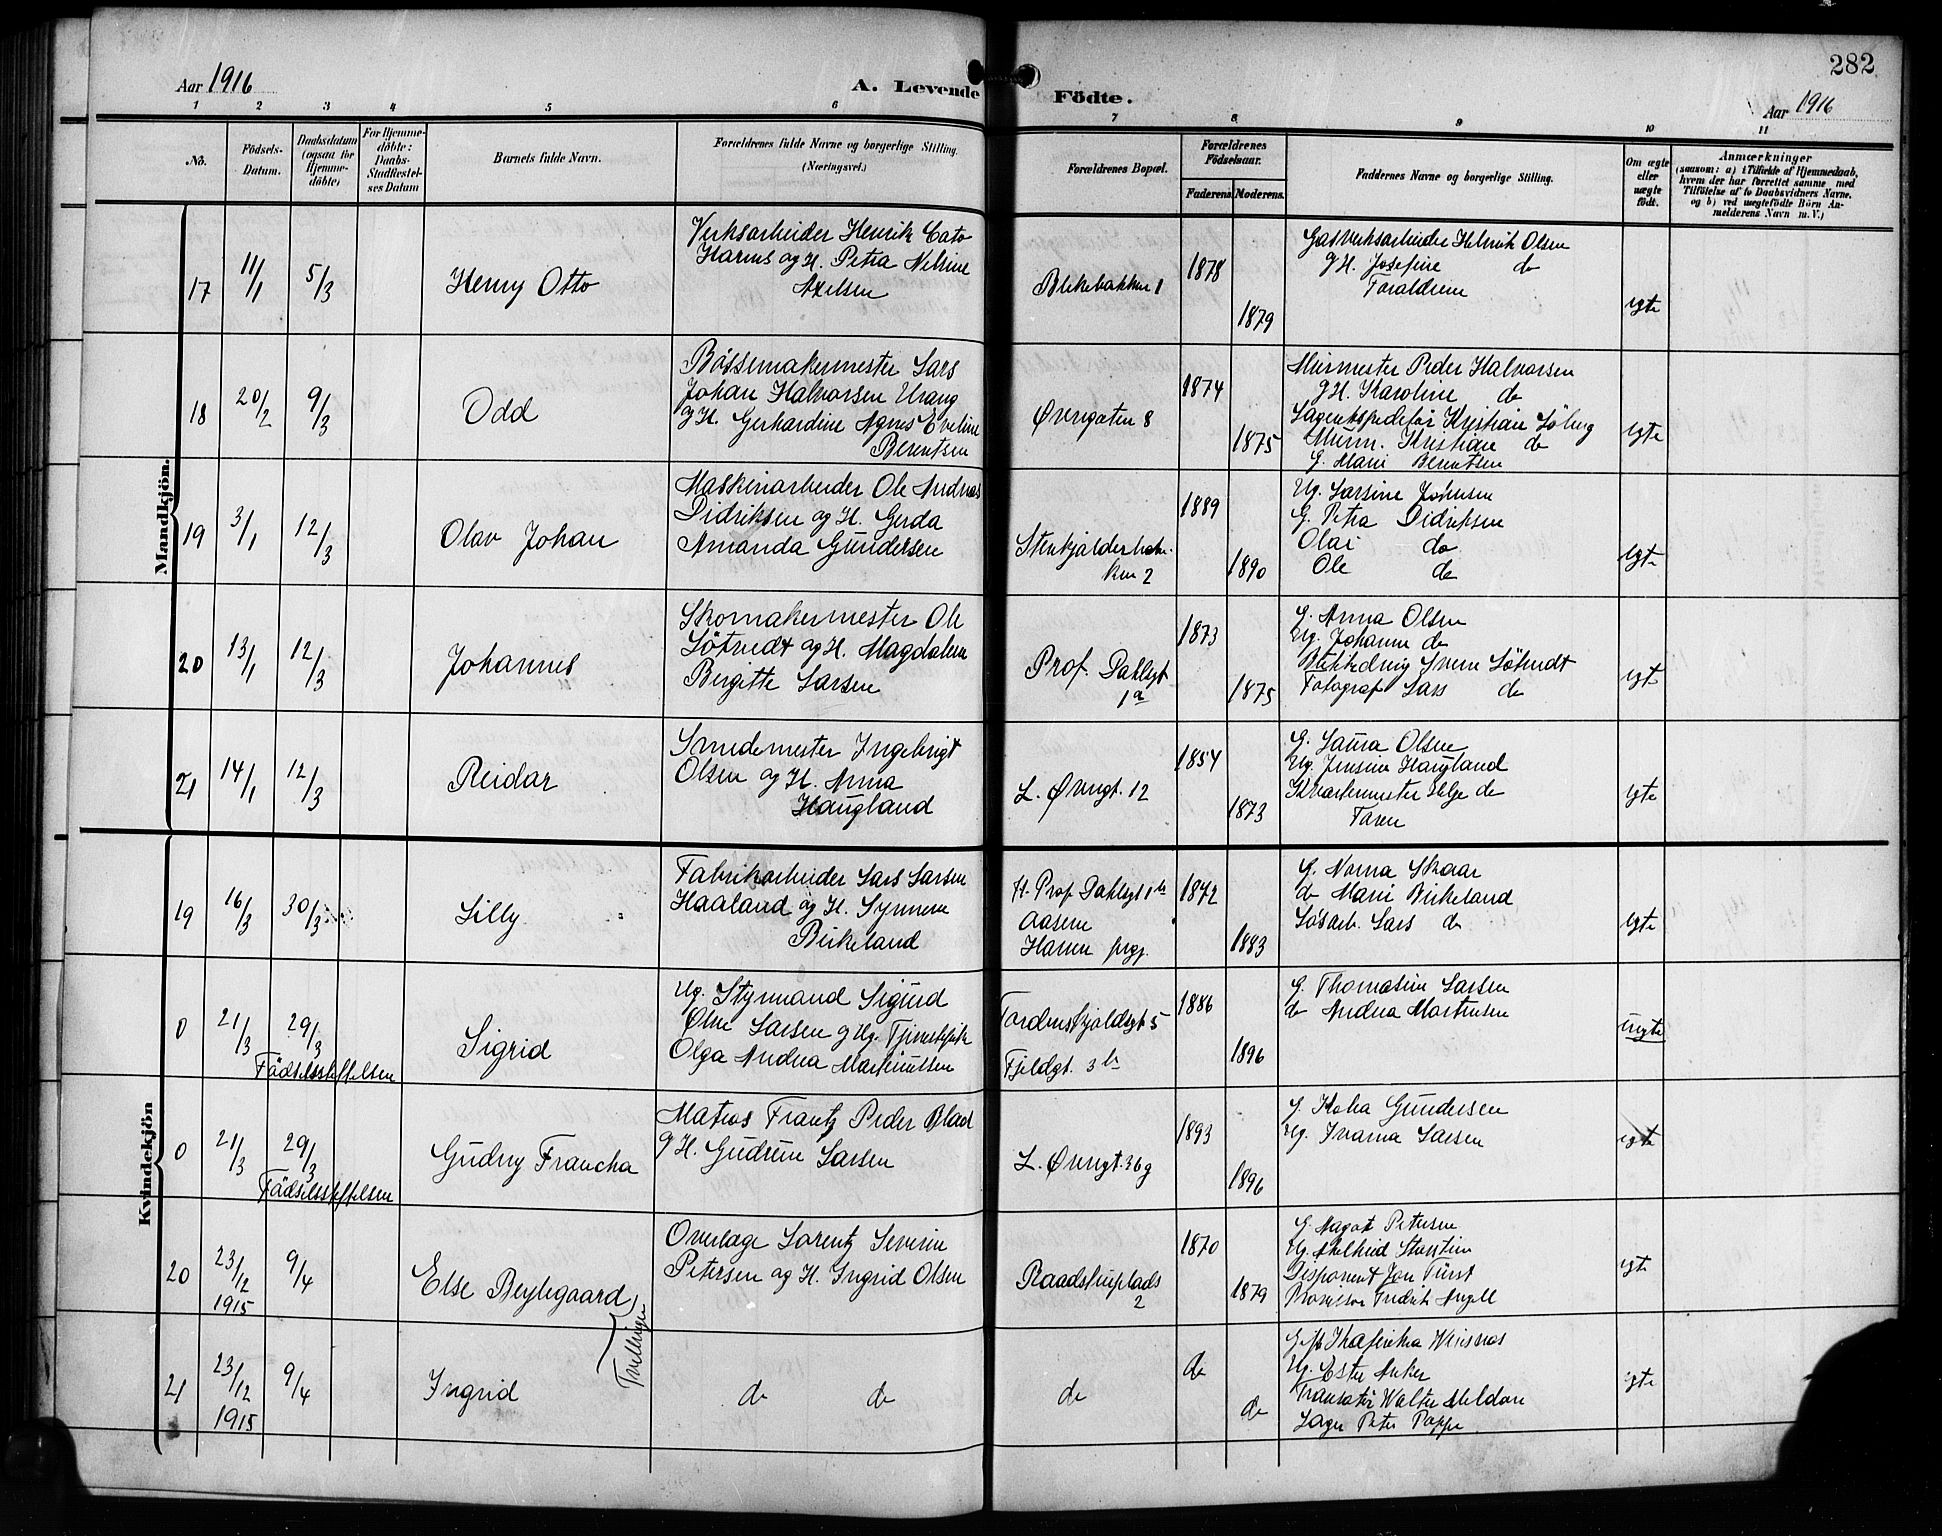 282
Aar 1916
A. Levende Födte.
Aar 1916
1 2 3 4 5 6 7 8 9 10 11
No.
Födsels-
Datum.
Daabsdatum
(ogsaa for
Hjemme-
döbte)
For Hjemme-
döbte:
Daabs-
Stadfæstel-
ses Datum
Barnets fulde Navn.
Forældrenes fulde Navne og borgerlige Stilling.
(Næringsvei.)
Forældrenes Bopæl.
Forældrenes
Födselsaar.
Faderens Moderens
Faddernes Navne og borgerlige Stilling.
Om ægte
eller
uægte
født.
Anmærkninger
(saasom: a) i Tilfælde af Hjemmedaab,
hvem der har forrettet samme med
Tilföielse af to Daabsvidners Navne,
og b) ved uægtefödte Börn An-
melderens Navn m. V.)
Mandkjön.
17
11/1
5/3
Henry Otto
Verksarbeider Henrik Cato
Harms og H. Petra Nelsine
Axelsen
Blekebakken 1
1878
1879
Gasverksarbeider Helmik Olsen
g H. Josefine do
Forældrene
egte
18
20/2
9/3
Odd
Bössemakermester Lars
Johan Halvorsen Urang
g H. Gerhardine Agnes Eveline
Berentsen
Øvregaten 8
1874
1875
Murmester Peder Halvorsen
g H. Karoline do
Lagerexpeditör Kristian Söberg
Murm. Kristian do
G. Marie Berentsen
egte
19
3/1
12/3
Olav Johan
Maskinarbeider Ole Andreas
Didriksen og H. Gerda
Amanda Gundersen
Stenkjælderbak-
ken 2
1889
1890
Ug. Larsine Johnsen
G. Petra Didriksen
Olai do
Ole do
egte
20
13/1
12/3
Johannes
Skomakermester Ole
Lötvedt og H. Magdalene
Birgitte Larsen
Prof. Dahlsgt
1a
1873
1875
G. Anna Olsen
Ug. Johanne do
Lötvedt
Fotograf Lars do
egte
21
14/1
12/3
Reidar
Smedemester Ingebrigt
Olsen og H. Anna
Haugland
L. Øvregt. 12
1854
1873
G. Laura Olsen
Ug. Jensine Haugland
Kvartermester Helge do
Faren
egte
Kvindekjön
19
16/3
30/3
Lilly
Fabrikarbeider Lars Larsen
Haaland og H. Synneve
Birkeland
H. Prof Dahlsgt 1b
Aasene
Haren prgj.
1872
1883
G. Norna Skaar
do Marie Birkeland
Lösarb. Lars do
egte
0
21/3
29/3
Födselsstiftelsen
Sigrid
Ug. Styrmand Sigurd
Øine Larsen g Ug. Tjenestepike
Olga Andrea Martinussen
Tordenskjoldsgt 5
Fjeldgt. 3b
1886
1896
G. Thomasine Larsen
do Andrea Martinsen
uegte
0
21/3
29/3
Födselsstiftelsen
Gudny Francha
Matros Frantz Peder Blad
g H. Gudrun Larsen
L. Øvregt. 36g
1893
1896
G. Hoha Gundersen
Ug. Ivarna Larsen
egte
20
23/12
1915
9/4
Else Beylegaard
Tvillinger
Overlæge Lorentz Severin
Petersen og H. Ingrid Olsen
Raadstuplads
2
1870
1879
G. Magot Petersen
Ug. Adelheid
Disponent Jon Fürst
Professor Fredrik Angell
egte
21
23/12
1915
9/4
Ingrid
do do
do
do
do
Ug. Ester Anker
Walter Meldau
Læge Peter Poppe
egte